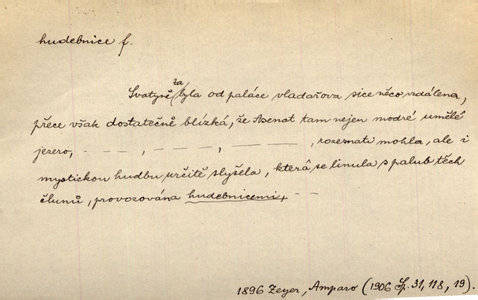 hudebnice f.
Svatyně ta byla od paláce vladařova sice něco vzdálena,
přece však dostatečně blízká, že Asenat tam nejen modré umělé
jezero, – – – , – – , – – – , rozeznati mohla, ale i
mystickou hudbu určitě slyšela, která se linula s palub těch
člunů, provozována hudebnicemi, – –
1896 Zeyer, Amparo (1906 Sp. 31, 118, 19).